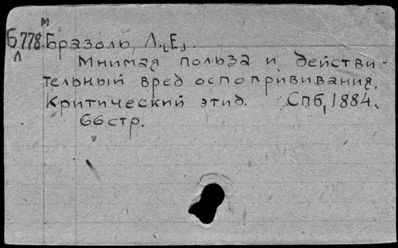 М
Б 778 Бразоль, Л. Е.
Л
Мнимая польза и действи-
тельный вред оспопрививания.
Критический этюд. Спб, 1884.
66 стр.